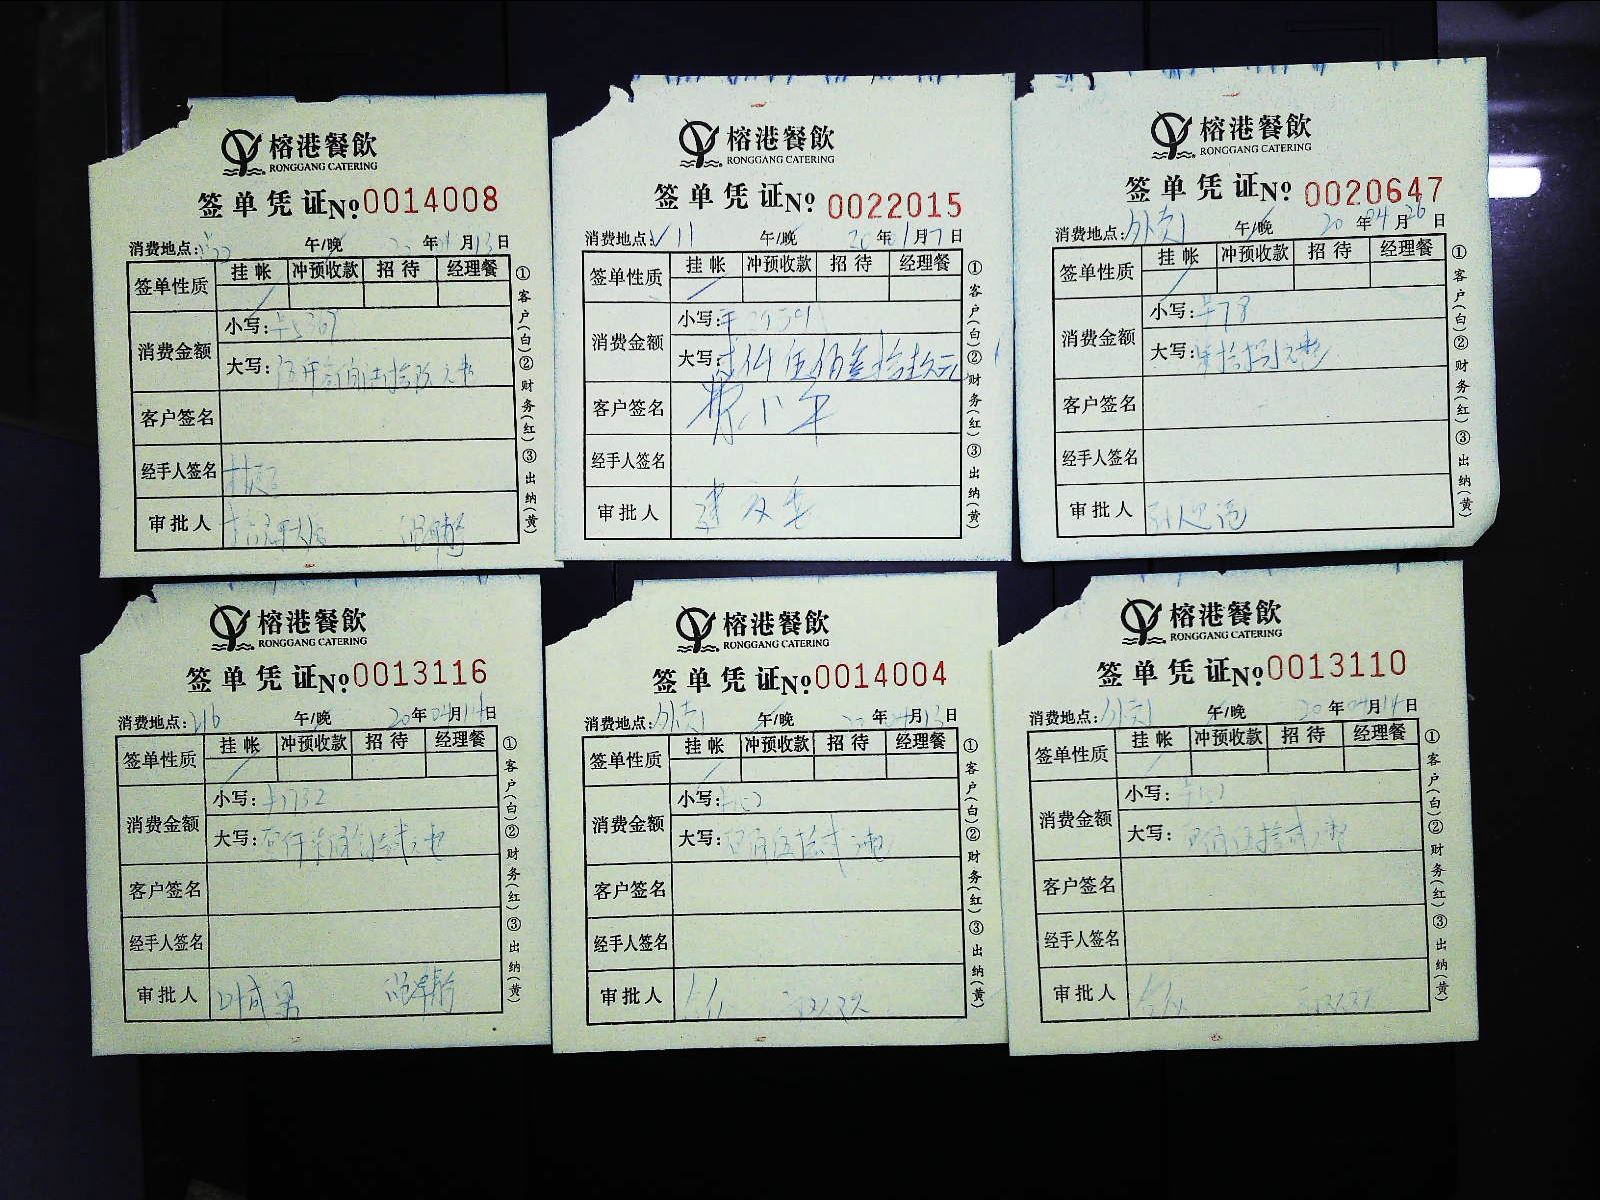 榕港餐飲
RONGGANG CATERING
签单凭证№0014008
消费地点: 午/晚 年 月13日
签单性质 挂帐 冲预收款 招待 经理餐
消费金额
小写:
大写:
客户签名
经手人签名
审批人
①客户(白)②财务(红)③出纳(黄)
榕港餐飲
RONGGANG CATERING
签单凭证№0022015
消费地点:V11 午/晚 20年 1月7日
签单性质 挂帐 冲预收款 招待 经理餐
消费金额
小写:
大写:
客户签名
经手人签名
审批人
①客户(白)②财务(红)③出纳(黄)
榕港餐飲
RONGGANG CATERING
签单凭证№0020647
消费地点:外卖1 午/晚 20年04月26日
签单性质 挂帐 冲预收款 招待 经理餐
消费金额
小写:¥78
大写:柒拾捌元整
客户签名
经手人签名
审批人
①客户(白)②财务(红)③出纳(黄)
榕港餐飲
RONGGANG CATERING
签单凭证№0013116
消费地点:216 午/晚 20年04月14日
签单性质 挂帐 冲预收款 招待 经理餐
消费金额
小写:¥1732
大写:
客户签名
经手人签名
审批人 叶成男
①客户(白)②财务(红)③出纳(黄)
榕港餐飲
RONGGANG CATERING
签单凭证№0014004
消费地点:外卖1 午/晚 年04月13日
签单性质 挂帐 冲预收款 招待 经理餐
消费金额
小写:
大写:
客户签名
经手人签名
审批人
①客户(白)②财务(红)③出纳(黄)
榕港餐飲
RONGGANG CATERING
签单凭证№0013110
消费地点:外卖1 午/晚 20年04月14日
签单性质 挂帐 冲预收款 招待 经理餐
消费金额
小写:
大写:
客户签名
经手人签名
审批人
①客户(白)②财务(红)③出纳(黄)